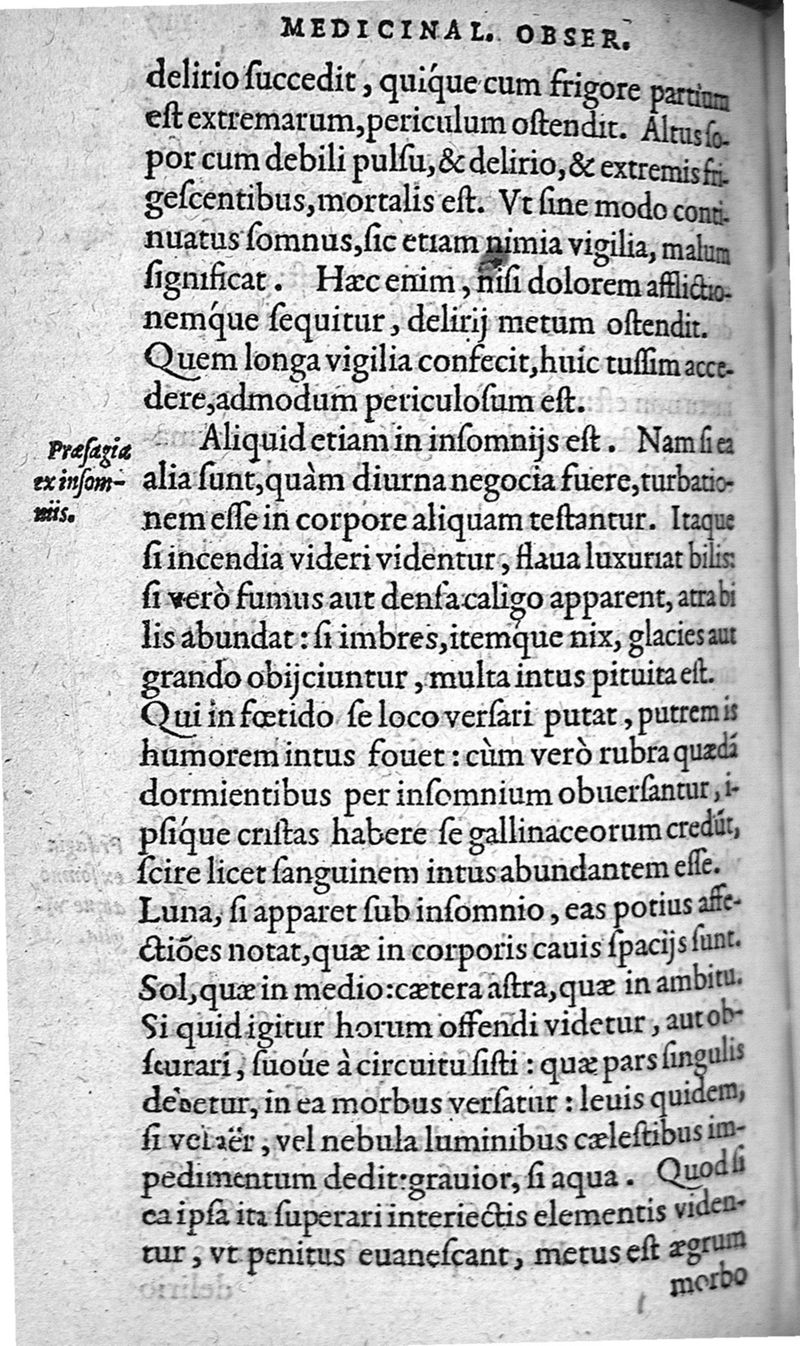 MEDICINAL. OBSER.
delirio ſuccedit, quíque cum frigore partium
eſt extremarum, periculum oſtendit. Altus ſo-
por cum debili pulſu, & delirio, & extremis fri-
geſcentibus, mortalis eſt. Vt ſine modo conti-
nuatus ſomnus, ſic etiam nimia vigilia, malum
ſignificat. Hæc enim, niſi dolorem afflictio-
nemq́ue ſequitur, delirij metum oſtendit.
Quem longa vigilia confecit, huic tuſſim acce-
dere, admodum periculoſum eſt.
Aliquid etiam in inſomnijs eſt. Nam ſi ea
Præſagia
ex inſom-
niis.
alia ſunt, quàm diurna negocia fuere, turbatio-
nem eſſe in corpore aliquam teſtantur. Itaque
ſi incendia videri videntur, flaua luxuriat bilis:
ſi verò fumus aut denſa caligo apparent, atra bi
lis abundat: ſi imbres, itemq́ue nix, glacies aut
grando obijciuntur, multa intus pituita eſt.
Qui in fœtido ſe loco verſari putat, putrem is
humorem intus fouet: cùm verò rubra quædã
dormientibus per inſomnium obuerſantur, i-
pſíque criſtas habere ſe gallinaceorum credũt,
ſcire licet ſanguinem intus abundantem eſſe.
Luna, ſi apparet ſub inſomnio, eas potius affe-
ctiões notat, quæ in corporis cauis ſpacijs ſunt.
Sol, quæ in medio: cætera aſtra, quæ in ambitu.
Si quid igitur horum offendi videtur, aut ob-
ſcurari, ſuóue à circuitu ſiſti: quæ pars ſingulis
debetur, in ea morbus verſatur: leuis quidem,
ſi vel aër, vel nebula luminibus cæleſtibus im-
pedimentum dedit: grauior, ſi aqua. Quod ſi
ea ipſa ita ſuperari interiectis elementis viden-
tur, vt penitus euaneſcant, metus eſt ægrum
morbo